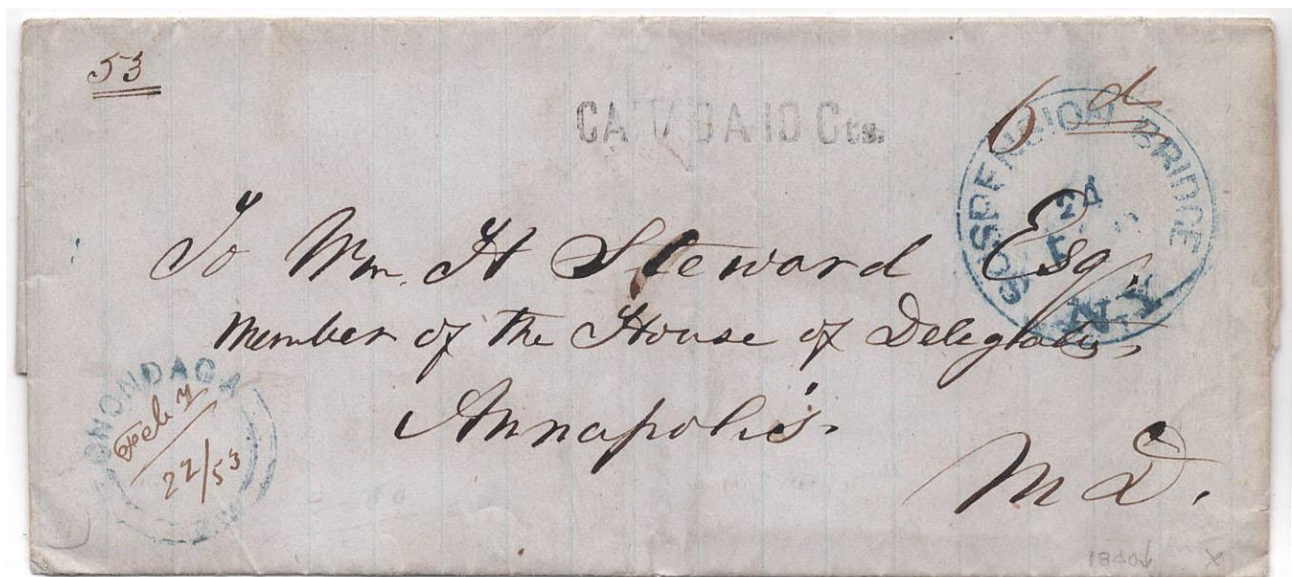 53
CANADA 10 Cts.
6d
SUSPENSION BRIDGE
24
N.Y
To Wm. H Steward Esq.
Member of the House of Delegates,
Annapolis.
M D.
ONONDAGA
Feby
22/53